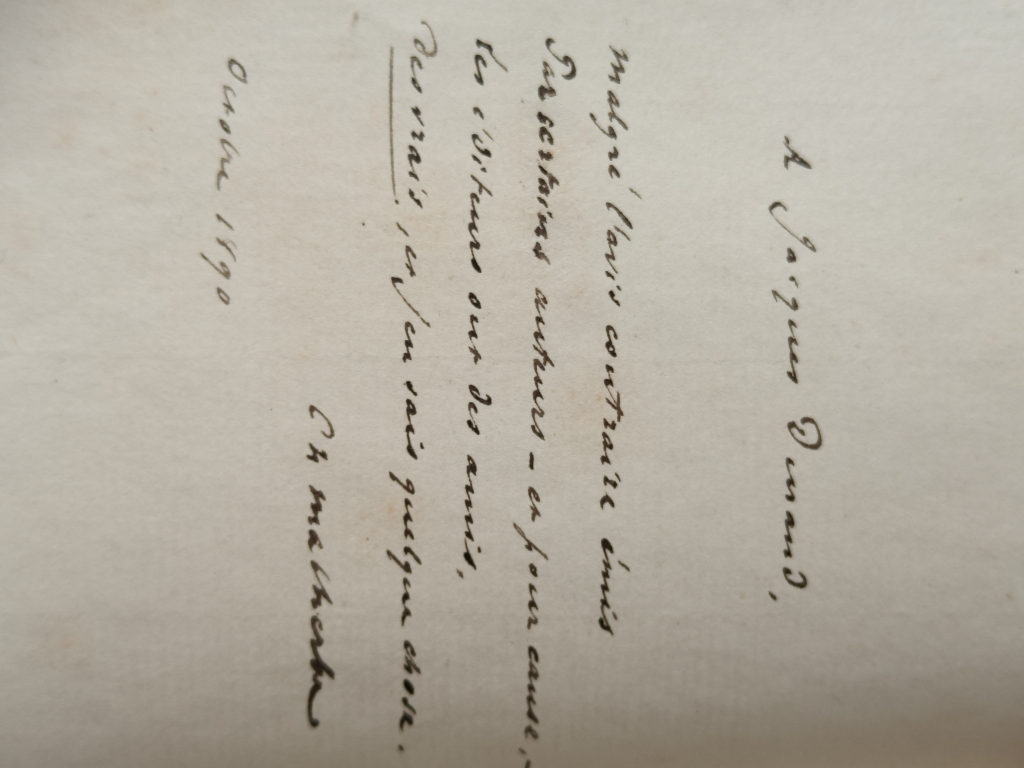 A Jacques Durand,
Malgré l'avis contraire émis
Par certains auteurs – et pour cause, –
Les éditeurs ont des amis,
Des vrais, et j'en sais quelque chose.
Ch Malherbe
Octobre 1890